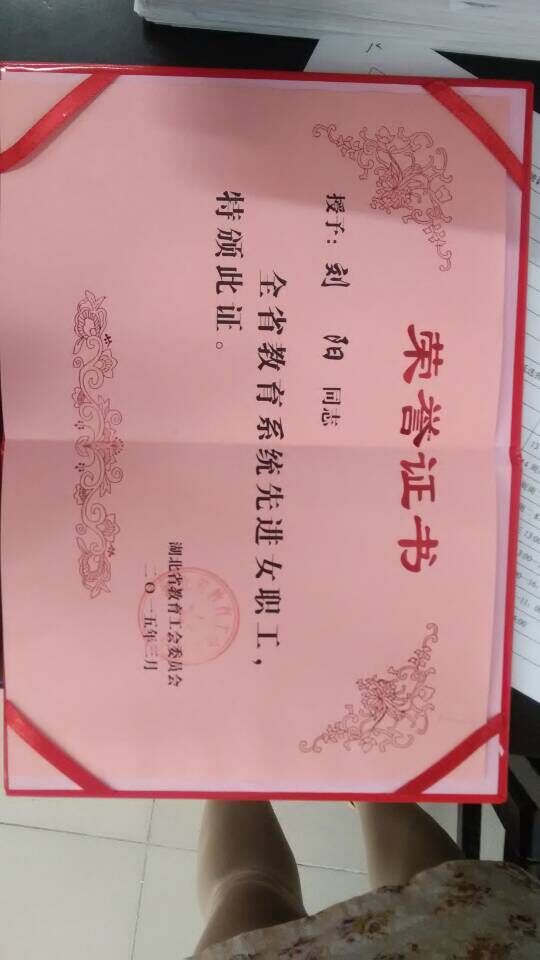 荣誉证书
授予：刘 阳 同志
全省教育系统先进女职工，
特颁此证。
湖北省教育工会委员会
二〇一五年三月